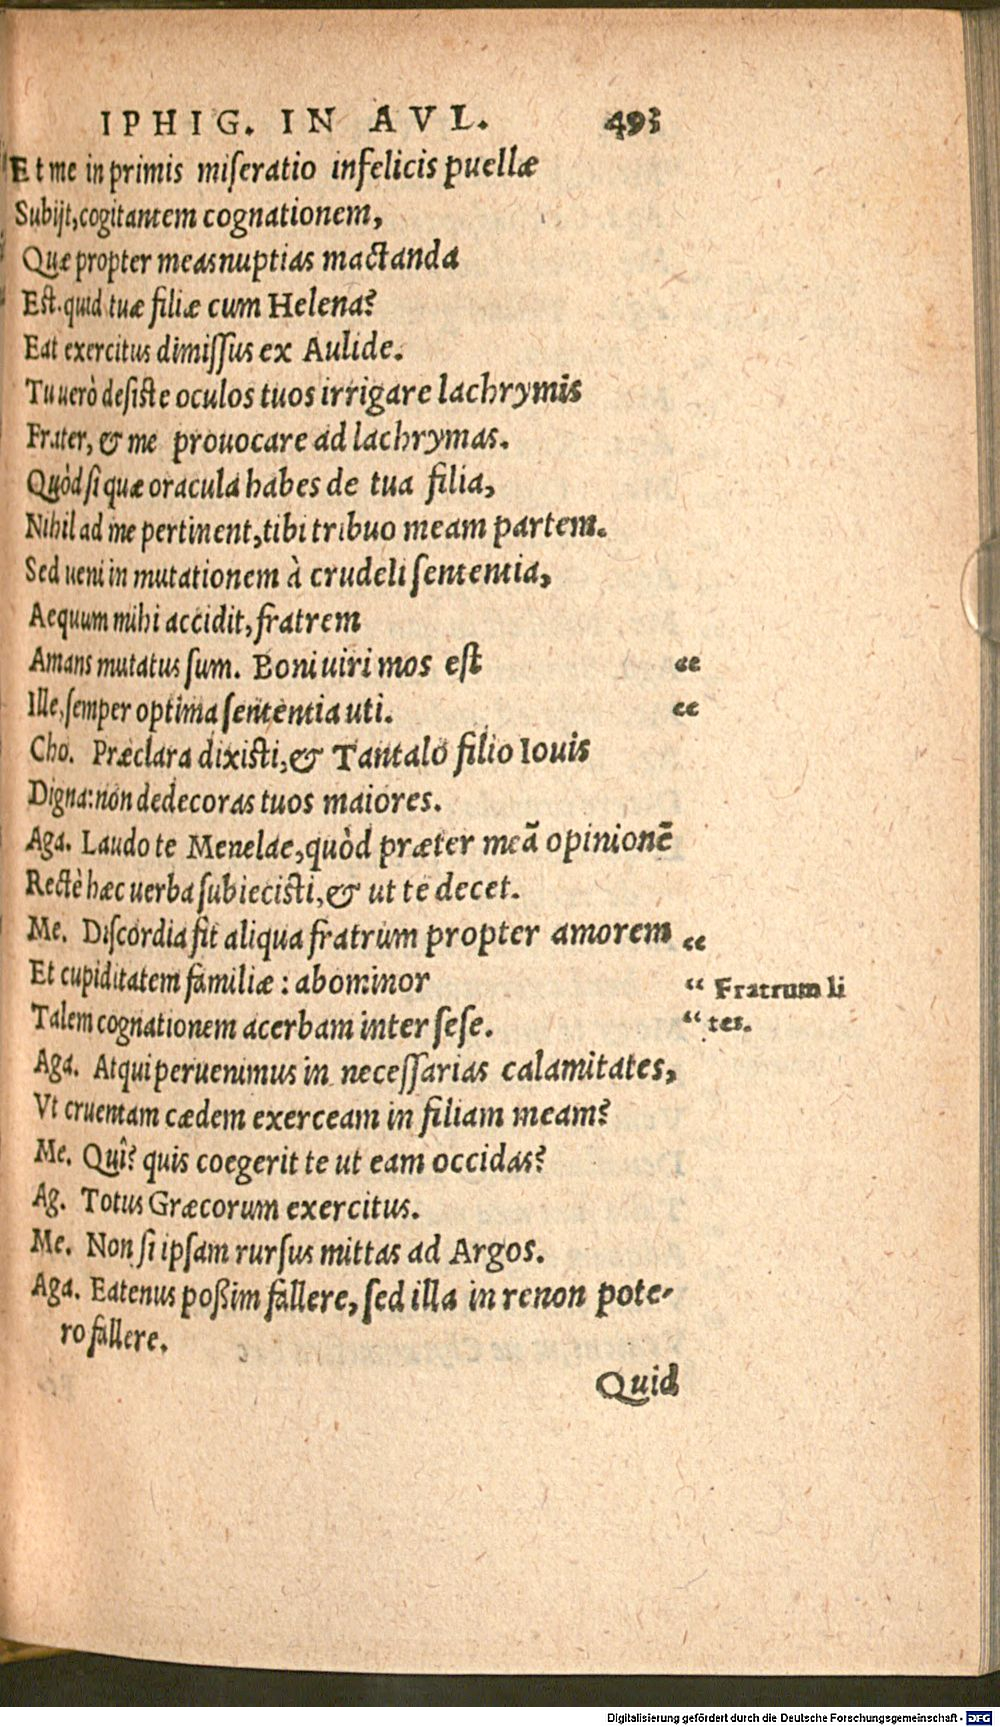 IPHIG. IN AVL. 493
Et me in primis miseratio infelicis puellæ
Subijt, cogitantem cognationem,
Quæ propter meas nuptias mactanda
Est. quid tuæ filiæ cum Helena?
Eat exercitus dimissus ex Aulide.
Tu uerò desiste oculos tuos irrigare lachrymis
Frater, & me prouocare ad lachrymas.
Quòd si quæ oracula habes de tua filia,
Nihil ad me pertinent, tibi tribuo meam partem.
Sed ueni in mutationem à crudeli sententia,
Aequum mihi accidit, fratrem
Amans mutatus sum. Boni uiri mos est “
Ille, semper optima sententia uti. “
Cho. Præclara dixisti, & Tantalo filio Iouis
Digna: non dedecoras tuos maiores.
Aga. Laudo te Menelae, quòd præter meã opinionẽ
Rectè hæc uerba subiecisti, & ut te decet.
Me. Discordia fit aliqua fratrum propter amorem “
Et cupiditatem familiæ: abominor “ Fratrum li
Talem cognationem acerbam inter sese. “ tes.
Aga. Atqui peruenimus in necessarias calamitates,
Vt cruentam cædem exerceam in filiam meam?
Me. Quî? quis coegerit te ut eam occidas?
Ag. Totus Græcorum exercitus.
Me. Non si ipsam rursus mittas ad Argos.
Aga. Eatenus poßim fallere, sed illa in re non pote-
ro fallere.
Quid
Digitalisierung gefördert durch die Deutsche Forschungsgemeinschaft - DFG